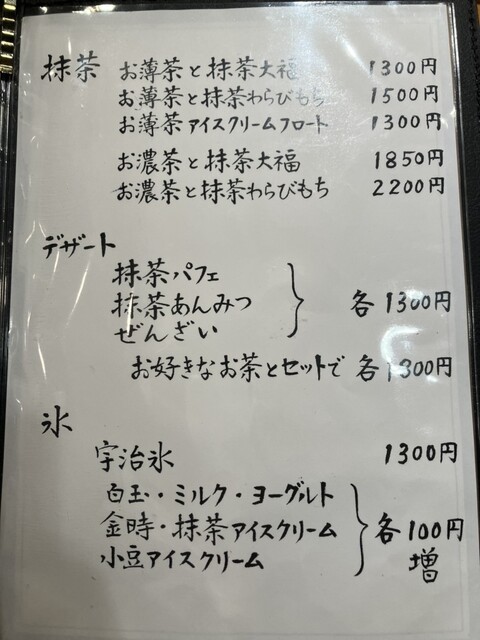 抹茶 お薄茶と抹茶大福 1300円
お薄茶と抹茶わらびもち 1500円
お薄茶アイスクリームフロート 1300円
お濃茶と抹茶大福 1850円
お濃茶と抹茶わらびもち 2200円
デザート
抹茶パフェ
抹茶あんみつ 各1300円
ぜんざい
お好きなお茶とセットで 各1300円
氷
宇治氷 1300円
白玉・ミルク・ヨーグルト
金時・抹茶アイスクリーム 各100円
小豆アイスクリーム 増